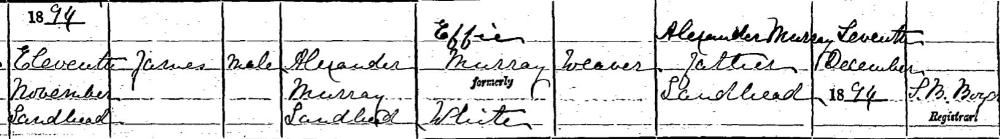 1894
Effie
Alexander Murray Seventh
Eleventh James Male Alexander Murray Weaver Father December
November Murray formerly Sandhead 1894
Sandhead Sandhead White
Registrar